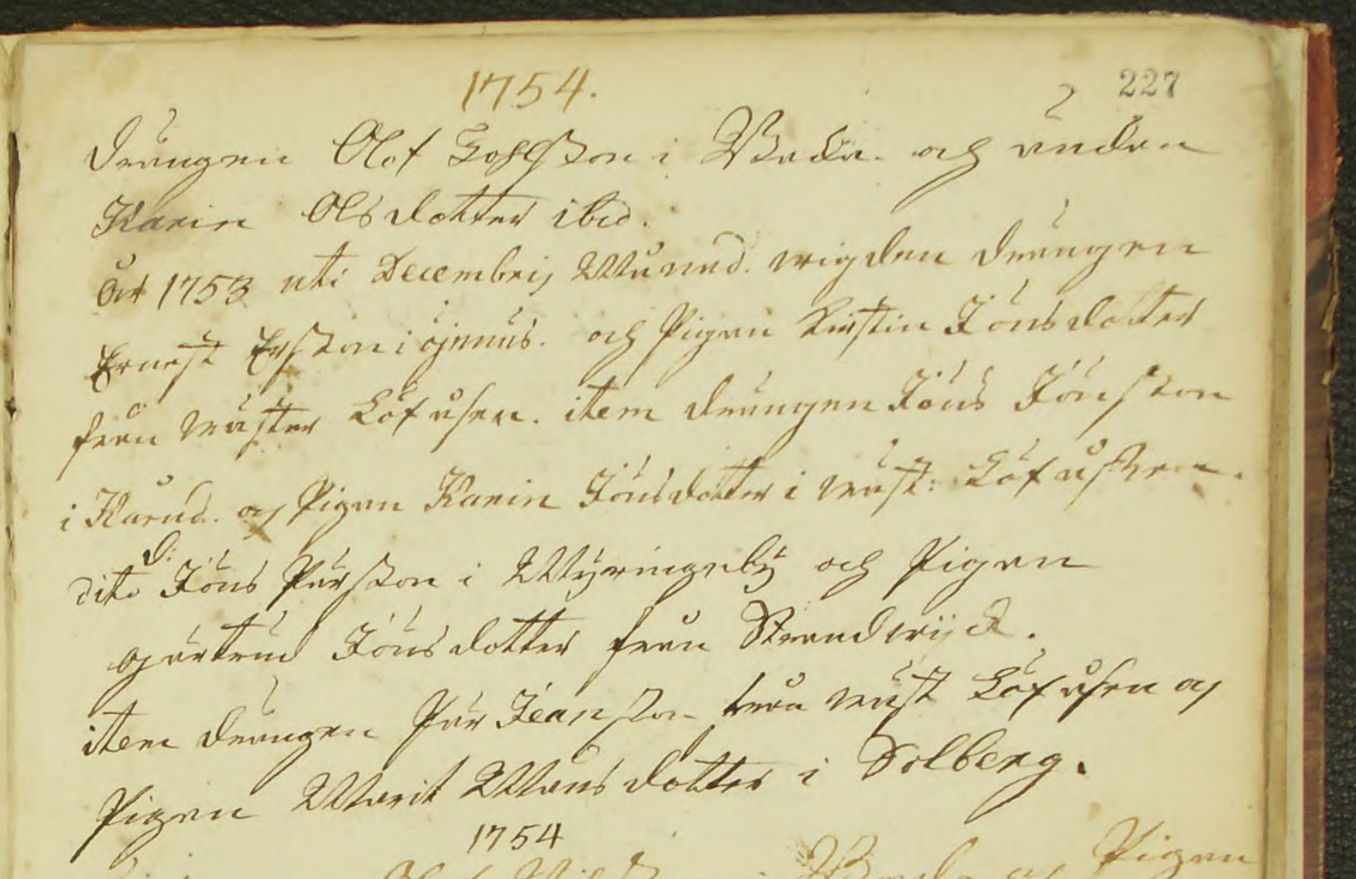 1754.
227
2
drängen Olof Tohlsson i Weda. och änckan
Karin Olsdotter ibid.
Åhr 1753 uti Decembris Månad. wigden drängen
Ernest Ersson i och Pigan Kirstin Jönsdotter
från wäster Löfåsen. item drängen Jöns Jönsson
i och Pigan Karin Jönsdotter i wäst: Löfåsen.
dito D: Jöns Pärsson i Myringeby och Pigan
gärtrud Jönsdotter från Strandwijck.
item drängen Pär Jeansson från wäst Löfåsen och
Pigan Marit Månsdotter i Solberg.
1754
Olof och Pigan